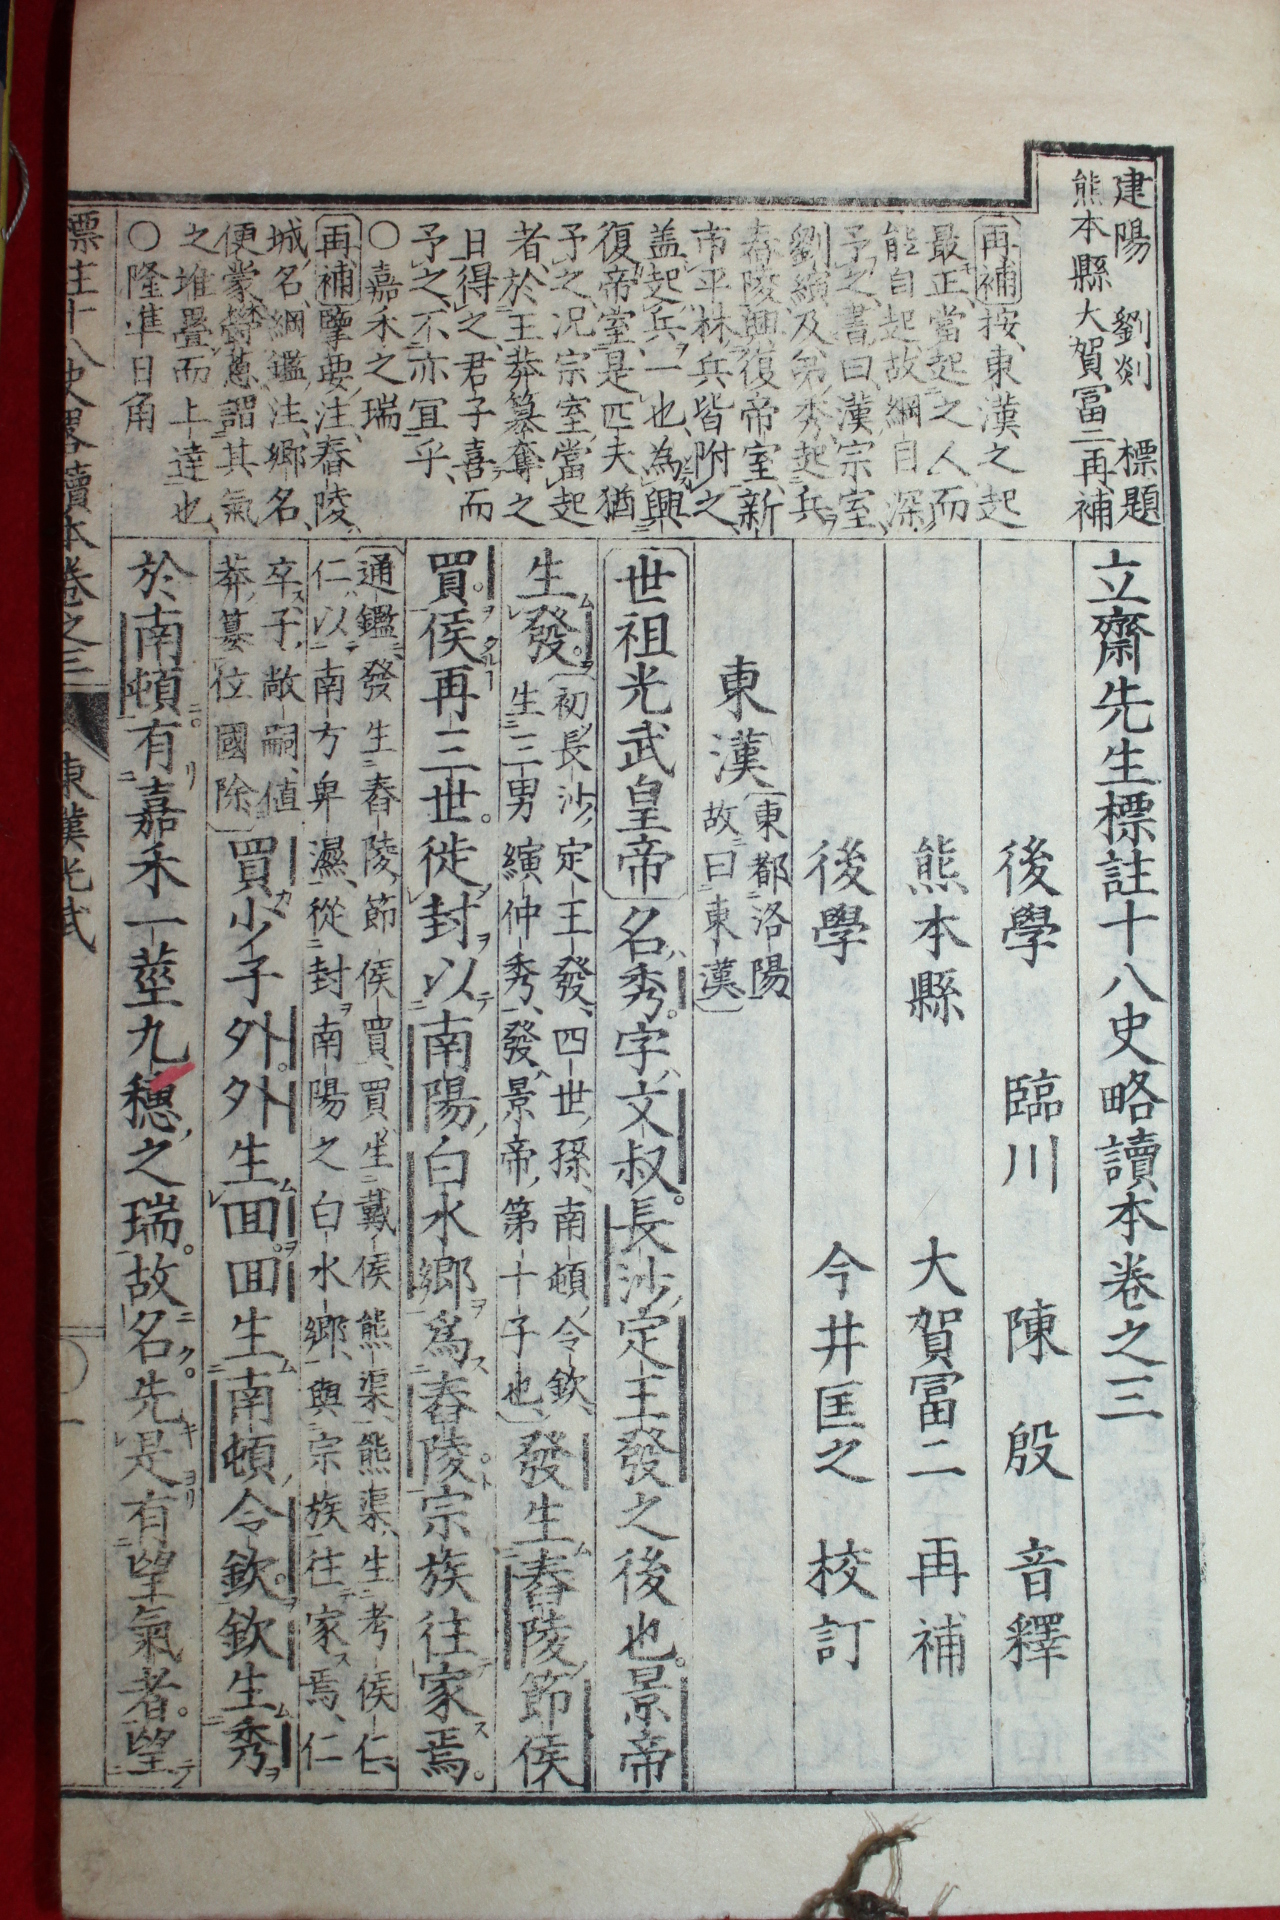 建陽　劉剡　標題
熊本縣大賀富二再補
再補按、東漢之起
最正、當起之人、而
能自起、故綱目深
予之、書曰、漢宗室
劉縯及弟秀起兵
舂陵、興復帝室、新
市平林兵皆附之、
蓋起兵一也、為興
復帝室、是匹夫猶
予之、况宗室當起
者、於王莽簒奪之
日得之、君子喜而
予之、不亦冝乎、
○嘉禾之瑞
再補鑒要注、舂陵、
城名、綱鑑注、鄉名、
便蒙、欝蔥、謂其氣
之堆疊而上達也、
○隆準日角
立齋先生標註十八史略讀本卷之三
後學　臨川　陳殷　音釋
熊本縣　大賀富二　再補
後學　今井匡之　校訂
東漢 東都洛陽
故曰東漢
世祖光武皇帝名秀。字文叔。長沙定王發之後也。景帝
生發。初長沙定王發、四世孫、南頓令欽、
生三男縯仲秀、發景帝第十子也、發生舂陵節侯
買。侯再三世。徙封以南陽白水鄉爲舂陵。宗族往家焉。
通鑑、發生舂陵節侯買、買生戴侯熊渠、熊渠生考侯仁、
仁以南方卑濕、從封南陽之白水鄉、與宗族往家焉、仁
卒、子敞嗣、值
莽簒位國除 買少子外。外生囬。囬生南頓令欽。欽生秀
於南頓。有嘉禾一莖九穗之瑞。故名。先是有望氣者。望
標註十八史畧讀本卷之三　東漢光武　一